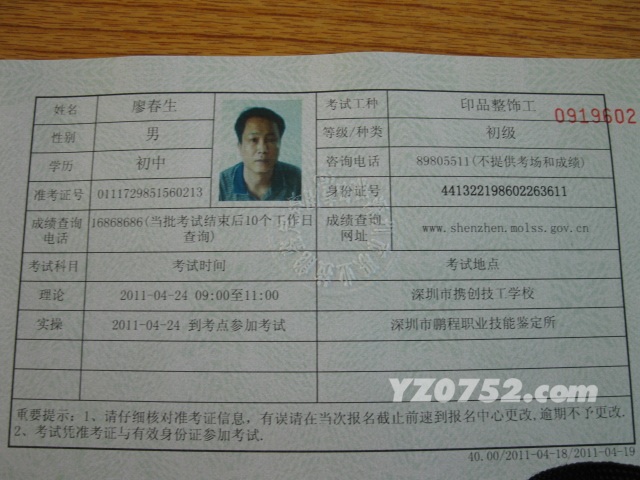 姓名 廖春生 考试工种 印品整饰工
0919602
性别 男 等级/种类 初级
学历 初中 咨询电话 89805511(不提供考场和成绩)
准考证号 0111729851560213 身份证号 441322198602263611
成绩查询电话 16868686(当批考试结束后10个工作日查询) 成绩查询网址 www.shenzhen.molss.gov.cn
考试科目 考试时间 考试地点
理论 2011-04-24 09:00至11:00 深圳市携创技工学校
实操 2011-04-24 到考点参加考试 深圳市鹏程职业技能鉴定所
YZ0752.com
重要提示: 1、请仔细核对准考证信息, 有误请在当次报名截止前速到报名中心更改, 逾期不予更改.
2、考试凭准考证与有效身份证参加考试.
40.00/2011-04-18/2011-04-19